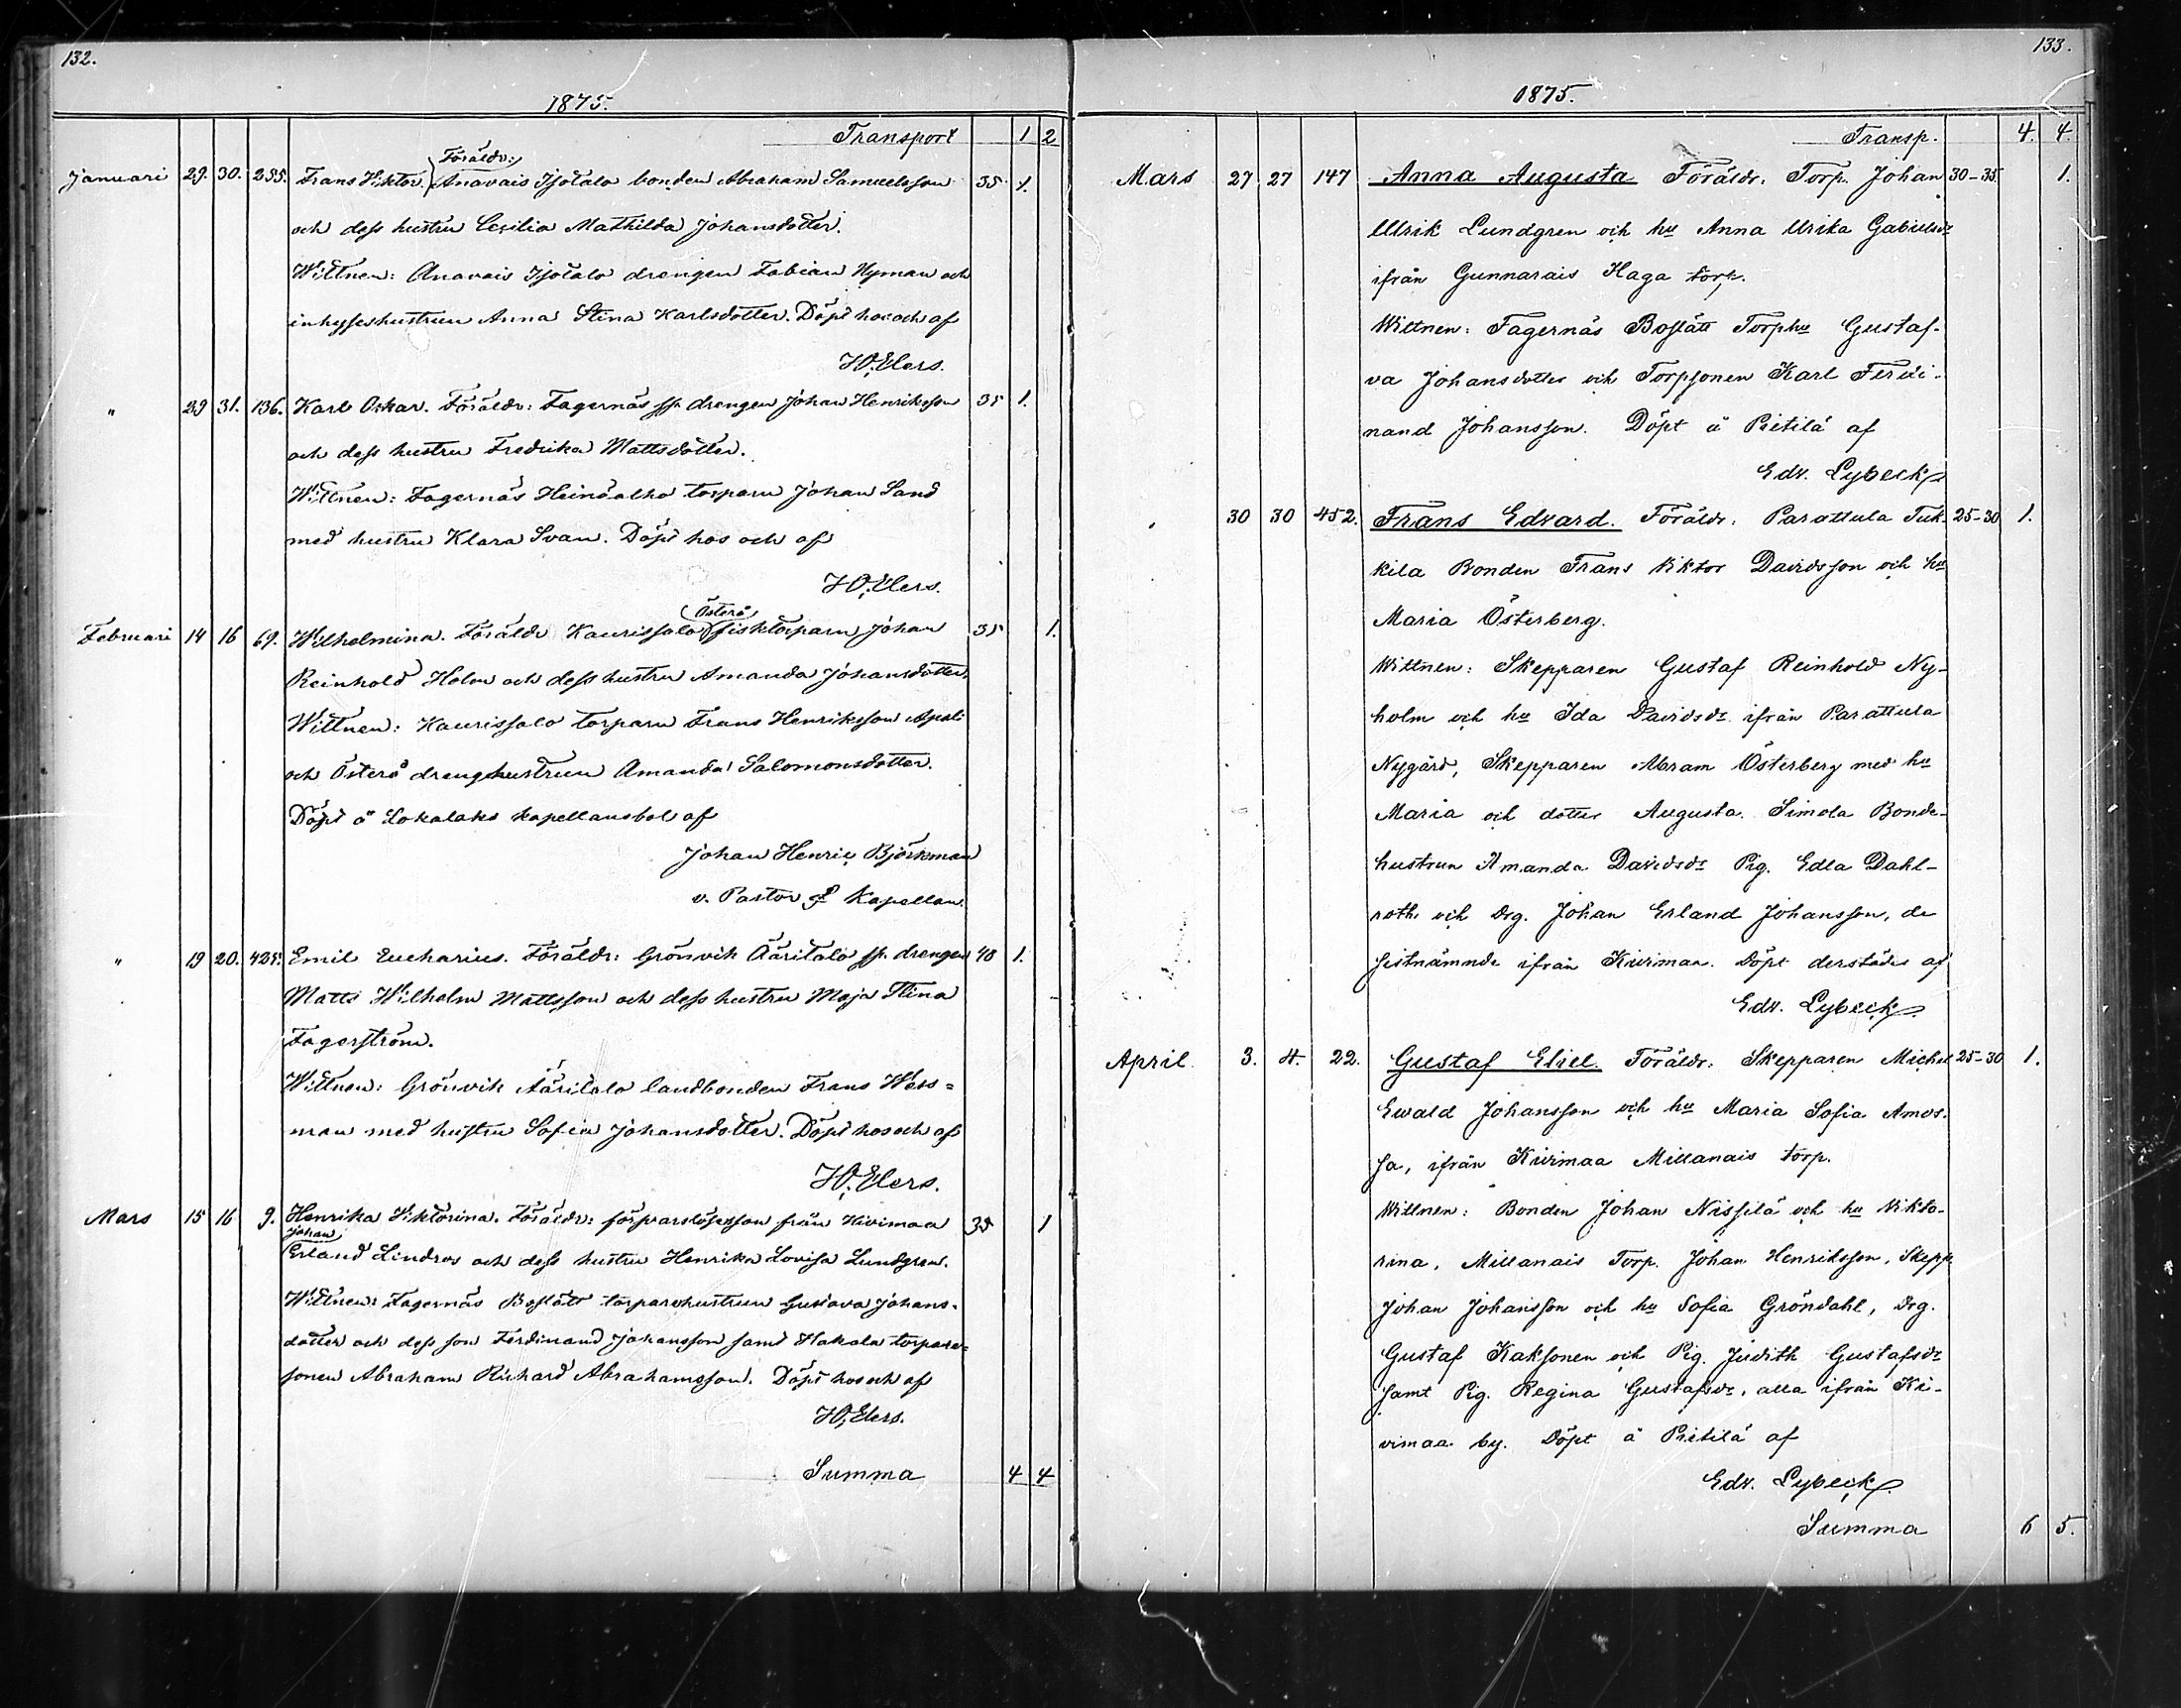 132.
1875.
Transport 1 2
Föräldr:
Januari 29. 30. 255. Frans Viktor. Anavais Isotalo bonden Abraham Samuelsson 35 1.
och dess hustru Cecilia Mathilda Johansdotter.
Wittnen: Anavais Isotalo drengen Fabian Nyman och
inhyseshustrun Anna Stina Karlsdotter. Döpt hos och af
Elers.
" 29 31. 136. Karl Oskar. Föräldr: Fagernäs sp. drengen Johan Henriksson 35 1.
och dess hustru Fredrika Mattsdotter.
Wittnen: Fagernäs torparn Johan Sand
med hustru Klara Svan. Döpt hos och af
Elers.
Österö
Februari 14 16 69. Wilhelmina. Föräldr Kaurissalo fisktorparn Johan 35 1.
Reinhold Holm och dess hustru Amanda Johansdotter,
Wittnen: Kaurissalo torparn Frans Henriksson
och Österö drenghustrun Amanda Salomonsdotter.
Döpt å Lokalaks kapellansbol af
Johan Henric Björkman
v. Pastor Kapellan.
" 19 20. 425. Emil Eucharius. Föräldr: Grönvik Ääritalo sp. drengen 40 1.
Matts Wilhelm Mattsson och dess hustru Maja Stina
Fagerström.
Wittnen: Grönvik Ääritalo landbonden Frans Wess=
man med hustru Sofia Johansdotter. Döpt hos och af
Elers.
Mars 15 16 9. Henrika Viktorina. Föräldr: från Kivimaa 35 1
Johan
Erland Lindros och dess hustru Henrika Lovisa Lundgren.
Wittnen: Fagernäs Bostätt torparehustrun Gustava Johans-
dotter och dess son Ferdinand Johansson samt Hakala torpare=
sonen Abraham Richard Abrahamsson. Döpt hos och af
Elers.
Summa 4 4
133.
1875.
Transp. 4. 4.
Mars 27 27 147 Anna Augusta Föräldr. Torp. Johan 30-35. 1.
Ulrik Lundgren och hu Anna Ulrika Gabrielsdr
ifrån Gunnarais Haga torp.
Wittnen: Fagernäs Bostätt Torphu Gustaf-
va Johansdotter och Torpsonen Karl Ferdi-
nand Johansson. Döpt å Pietilä af
Edv. Lybeck
30 30 452. Frans Edvard. Föräldr: Parattula Tuk- 25-30 1.
kila Bonden Frans Viktor Davidsson och hu
Maria Österberg.
Wittnen: Skepparen Gustaf Reinhold Ny-
holm och hu Ida Davidsdr ifrån Parattula
Nygård, Skepparen Abram Österberg med hu
Maria och dotter Augusta. Simola Bonde-
hustrun Amanda Davidsdr Pig. Edla Dahl-
roth och Drg. Johan Erland Johansson, de
sistnämnde ifrån Kivimaa. Döpt derstädes af
Edv. Lybeck
April 3. 4. 22. Gustaf Eliel. Föräldr: Skepparen Michel 25-30 1.
Ewald Johansson och hu Maria Sofia Amos-
sa, ifrån Kivimaa Millanais torp.
Wittnen: Bonden Johan Nissilä och hu Vikto-
rina, Millanais Torp. Johan Henriksson, Skepp.
Johan Johansson och hu Sofia Gröndahl, Drg.
Gustaf Kaksonen och Pig. Judith Gustafsdr
samt Pig. Regina Gustafsdr, alla ifrån Ki-
vimaa by. Döpt å Pietilä af
Edv. Lybeck
Summa 6 5.